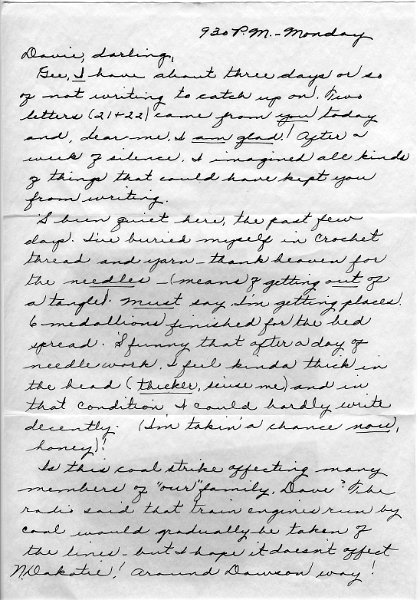 930 P.M. - Monday
Dave, darling,
Gee, I have about three days or so
of not writing to catch up on. Two
letters (21+22) came from you today
and, dear-me, I am glad! After a
week of silence, I imagined all kinds
of things that could have kept you
from writing.
'S been quiet here, the past few
days. I've buried myself in crochet
thread and yarn - thank heaven for
the needles - (means of getting out of
a tangle). Must say I'm getting places.
6 medallions finished for the bed
spread. 'S funny that after a day of
needlework, I feel kinda thick in
the head (thicker, 'scuse me) and in
that condition, I could hardly write
decently. (I'm takin' a chance now,
honey)!
Is this coal strike affecting many
members of "our" family, Dave? The
radio said that train engines run by
coal would gradually be taken of
the lines - but I hope it doesn't affect
N. Dakotie! Around Dawson way!